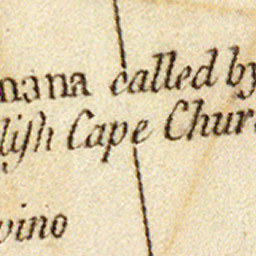 nana called by
lish Cape Chur
vino